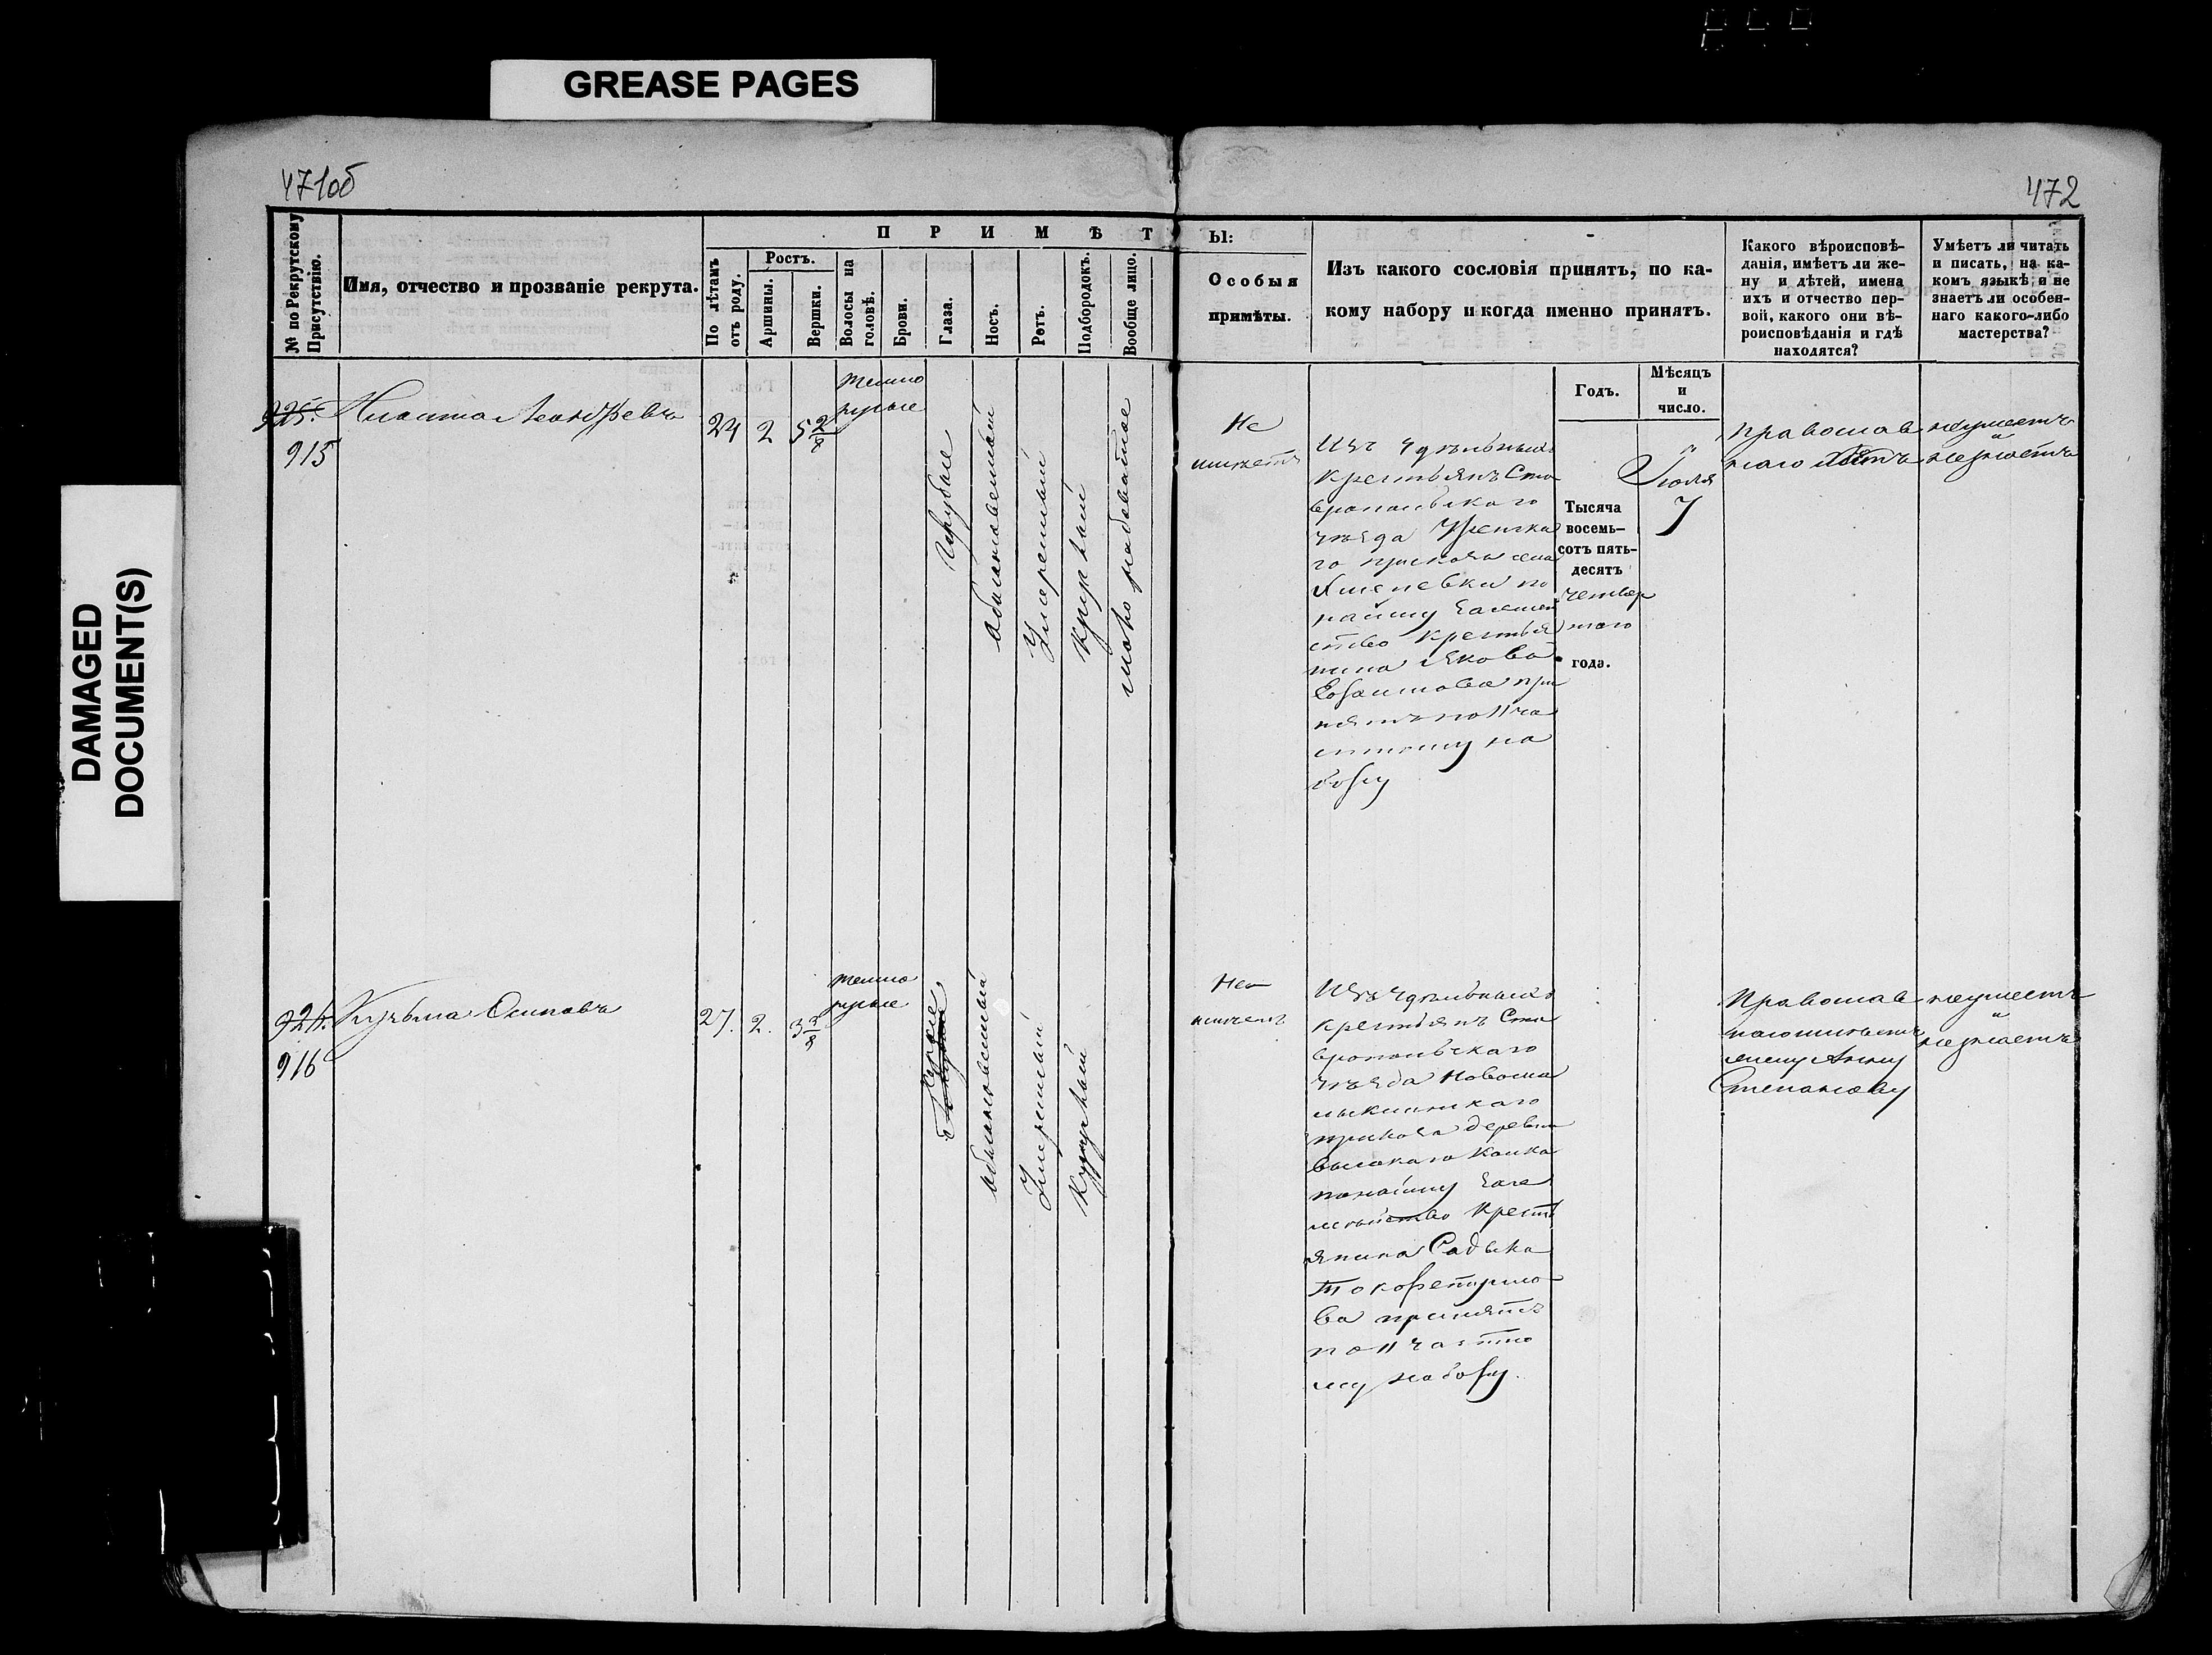 GREASE PAGES
DAMAGED
DOCUMENT(S)
471об
472
№ по Рекрутскому
Присутствію.
Имя, отчество и прозваніе рекрута.
П Р И М Ѣ Т
Ы:
По лѣтамъ
отъ роду.
Ростъ.
Аршины.
Вершки.
Волосы на
головѣ.
Брови.
Глаза.
Носъ.
Ротъ.
Подбородокъ.
Вообще лицо.
Особыя
примѣты.
Изъ какого сословія принятъ, по ка-
кому набору и когда именно принятъ.
Какого вѣроисповѣ-
данія, имѣетъ ли же-
ну и дѣтей, имена
ихъ и отчество пер-
вой, какого они вѣ-
роисповѣданія и гдѣ
находятся?
Умѣетъ ли читать
и писать, на ка-
комъ языкѣ, и не
знаетъ ли особен-
наго какого-либо
мастерства?
Годъ.
Мѣсяцъ
и
число.
925.
915
24
2
5 2/8
темно
русые
Голубые
обыкновенный
Умеренный
Круглый
Не
имѣетъ
Изъ Удѣльныхъ
крестьянъ Ста
вропольскаго
уѣзда
го приказа села
по
найму
крестья
нина Якова
при
нятъ по 11 ча
стному на
бору
Тысяча
восемь-
сотъ пять-
десятъ
четвер
таго
года.
Іюля
7
Православ
наго
неумѣетъ
и
незнаетъ
926.
916
Кузьма Осиповъ
27.
2.
3 3/8
темно
русые
Карые
обыкновенный
Умеренный
Круглый
Не
имѣетъ
Изъ Удѣльныхъ
крестьянъ Ста
вропольскаго
уѣзда Новома
лыклинскаго
приказа деревни
по найму
крестъ
янина Садыка
ва принятъ
по 11 частно
му набору.
Православ
наго имѣетъ
жену Анну
Степанову
неумѣетъ
и
незнаетъ